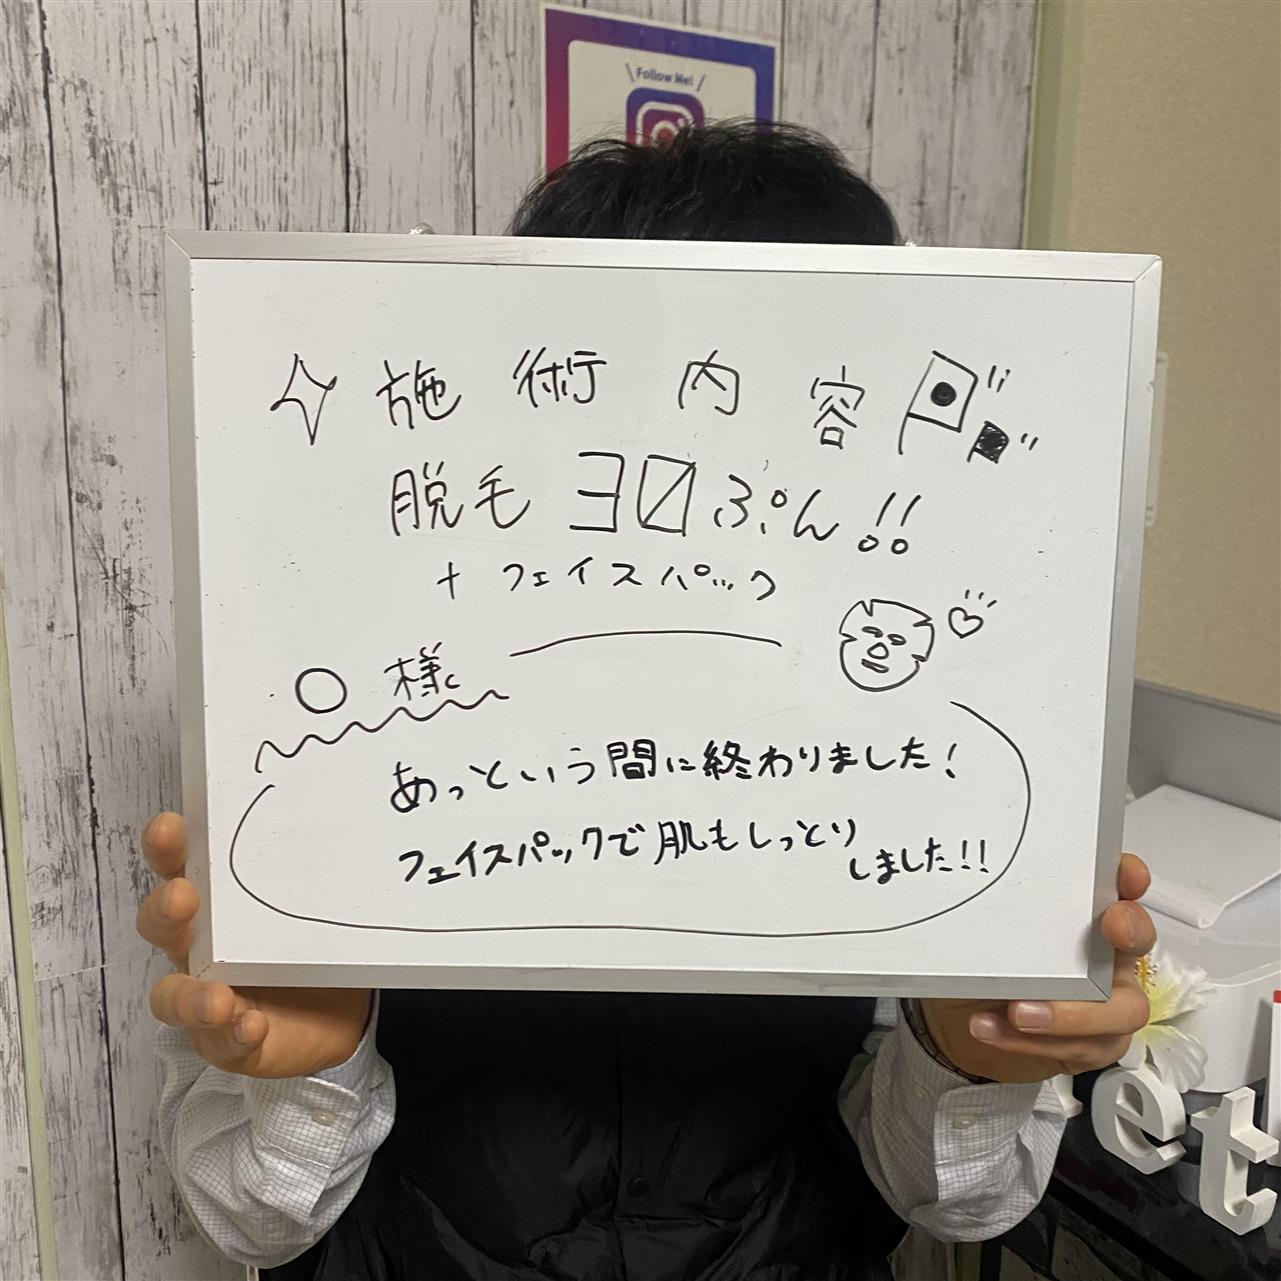 \ Follow Me! /
施術内容
脱毛 30ぷん!!
+ フェイスパック
○ 様
あっという間に終わりました!
フェイスパックで肌もしっとり
しました!!
et